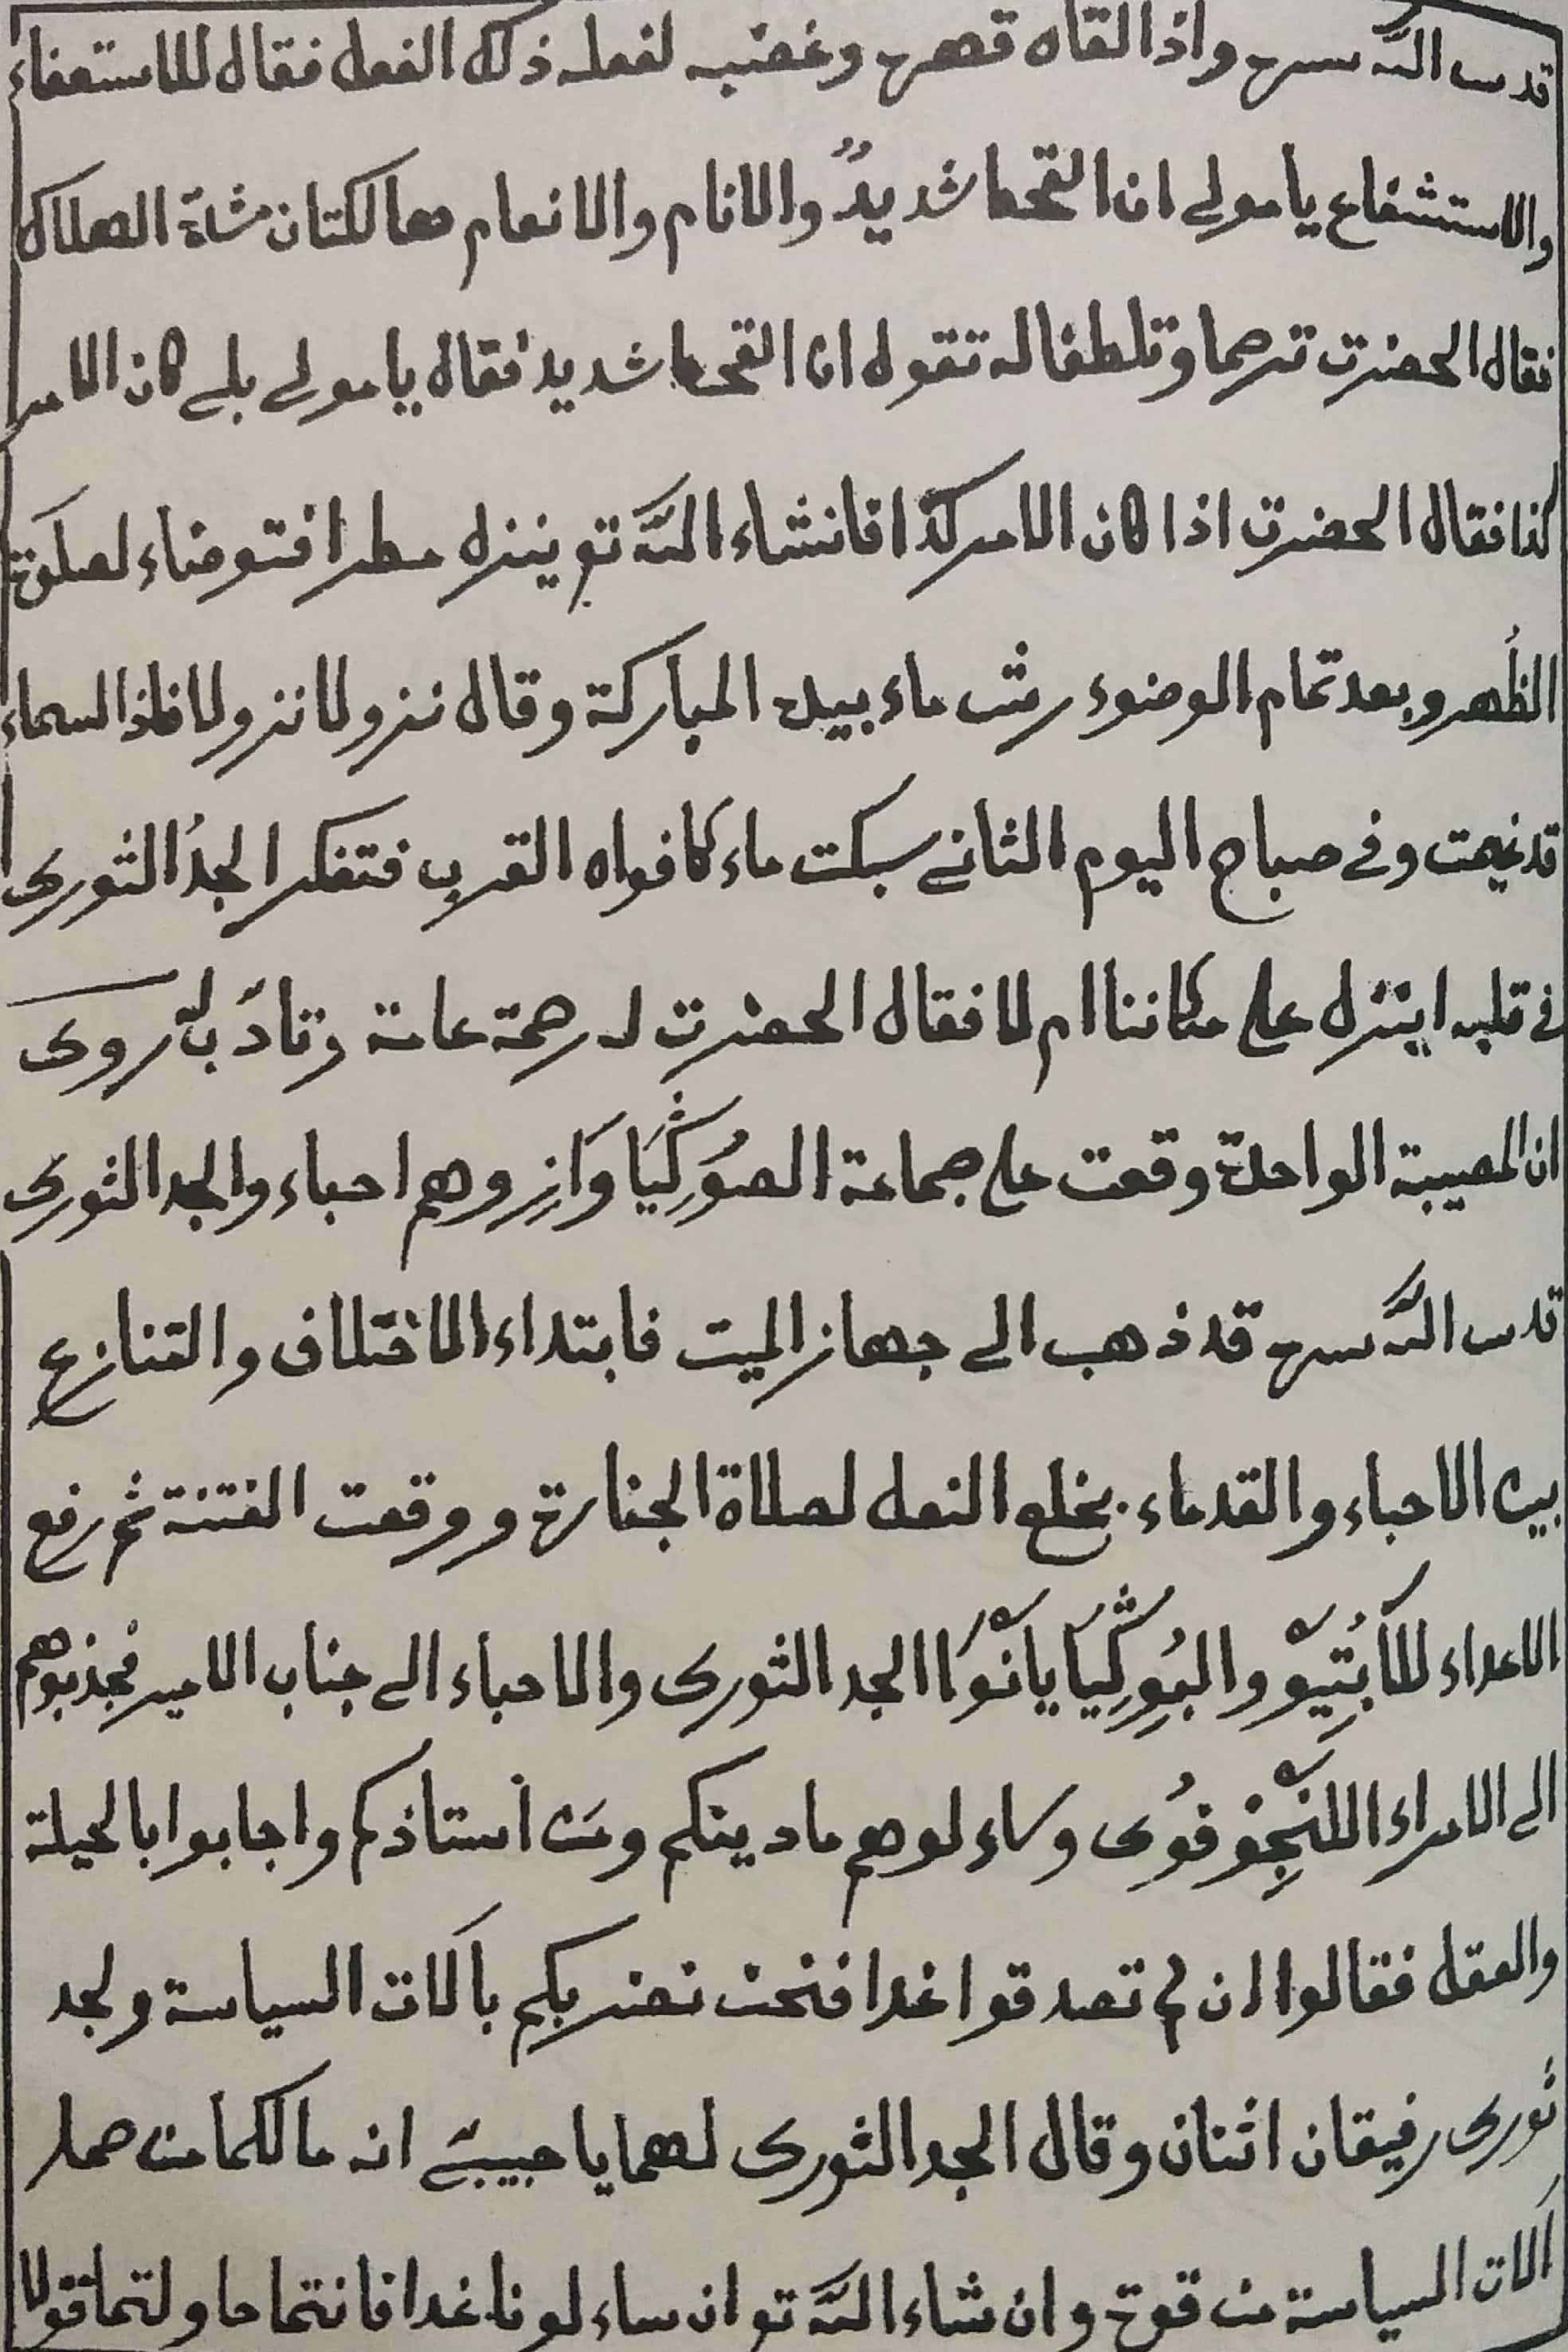 قدس اللّه سره واذا القاه قهره وغضبه لفعله ذلك الفعل فقال للاستعفاء
والاستشفاع يا مولى ان القحط شديدٌ والانام والانعام هما لكتان مشاة الهلاك
فقال الحضرت ترحما وتلطفا له تقول ان القحط شديد فقال يا مولى بلى كان الامر
كذا فقال الحضرت اذا كان الامر كذا فانشاء اللّه تع ينزل مطرا فتوضاء لصلٰوة
الظُهر وبعد تمام الوضوء رش ماء بيده المباركة وقال نزولا نزولا فاذا السماء
قد غيمت وفى صباح اليوم الثانى سبكت ماء كافواه القرب فتفكر الجدُ الثورى
فى قلبه اينزل على مكاننا ام لا فقال الحضرت له رحمة عامة وتادّبا روى
ان المصيبة الواحدة وقعت على جماعة الصُوْرِكْيَاوَازِ وهم احباء والجد الثورى
قدس اللّه سره قد ذهب الى جهاز الميت فابتداء الاختلاف والتنازع
بين الاحباء والقدماء بخلع النعل لصلاة الجنازة ووقعت الفتنة ثم رفع
الاعداء للاَبُتِيو والبُوِرِكْيَا يانوَا الجد الثورى والاحباء الى جناب الامير فجذبوهم
الى الامراء اللنجِوْفوُى وساءلوهم ما دينكم ومَن أستاذكم واجابوا بالحيلة
والعقل فقالوا ان لم تصدقوا غدا فنحن نضربكم بآلات السياسة ولجد
ثورى رفيقان اثنان وقال الجد الثورى لهما يا حبيبىَّ انه مالكما من حمل
آلات السياسة من قوة وان شاء اللّه تع ان ساءلونا غدا فانتما حاولتما قولا